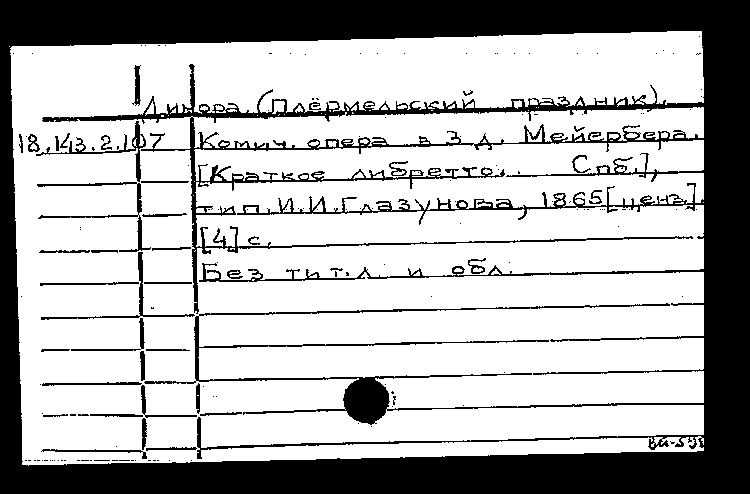 Динора. (Плёрмельский праздник).
18.143.2.107 Комич. опера в 3 д. Мейербера.
[Краткое либретто. Спб.],
тип. И.И. Глазунова, 1865 [ценз].
[4] с.
Без тит. л. и обл.